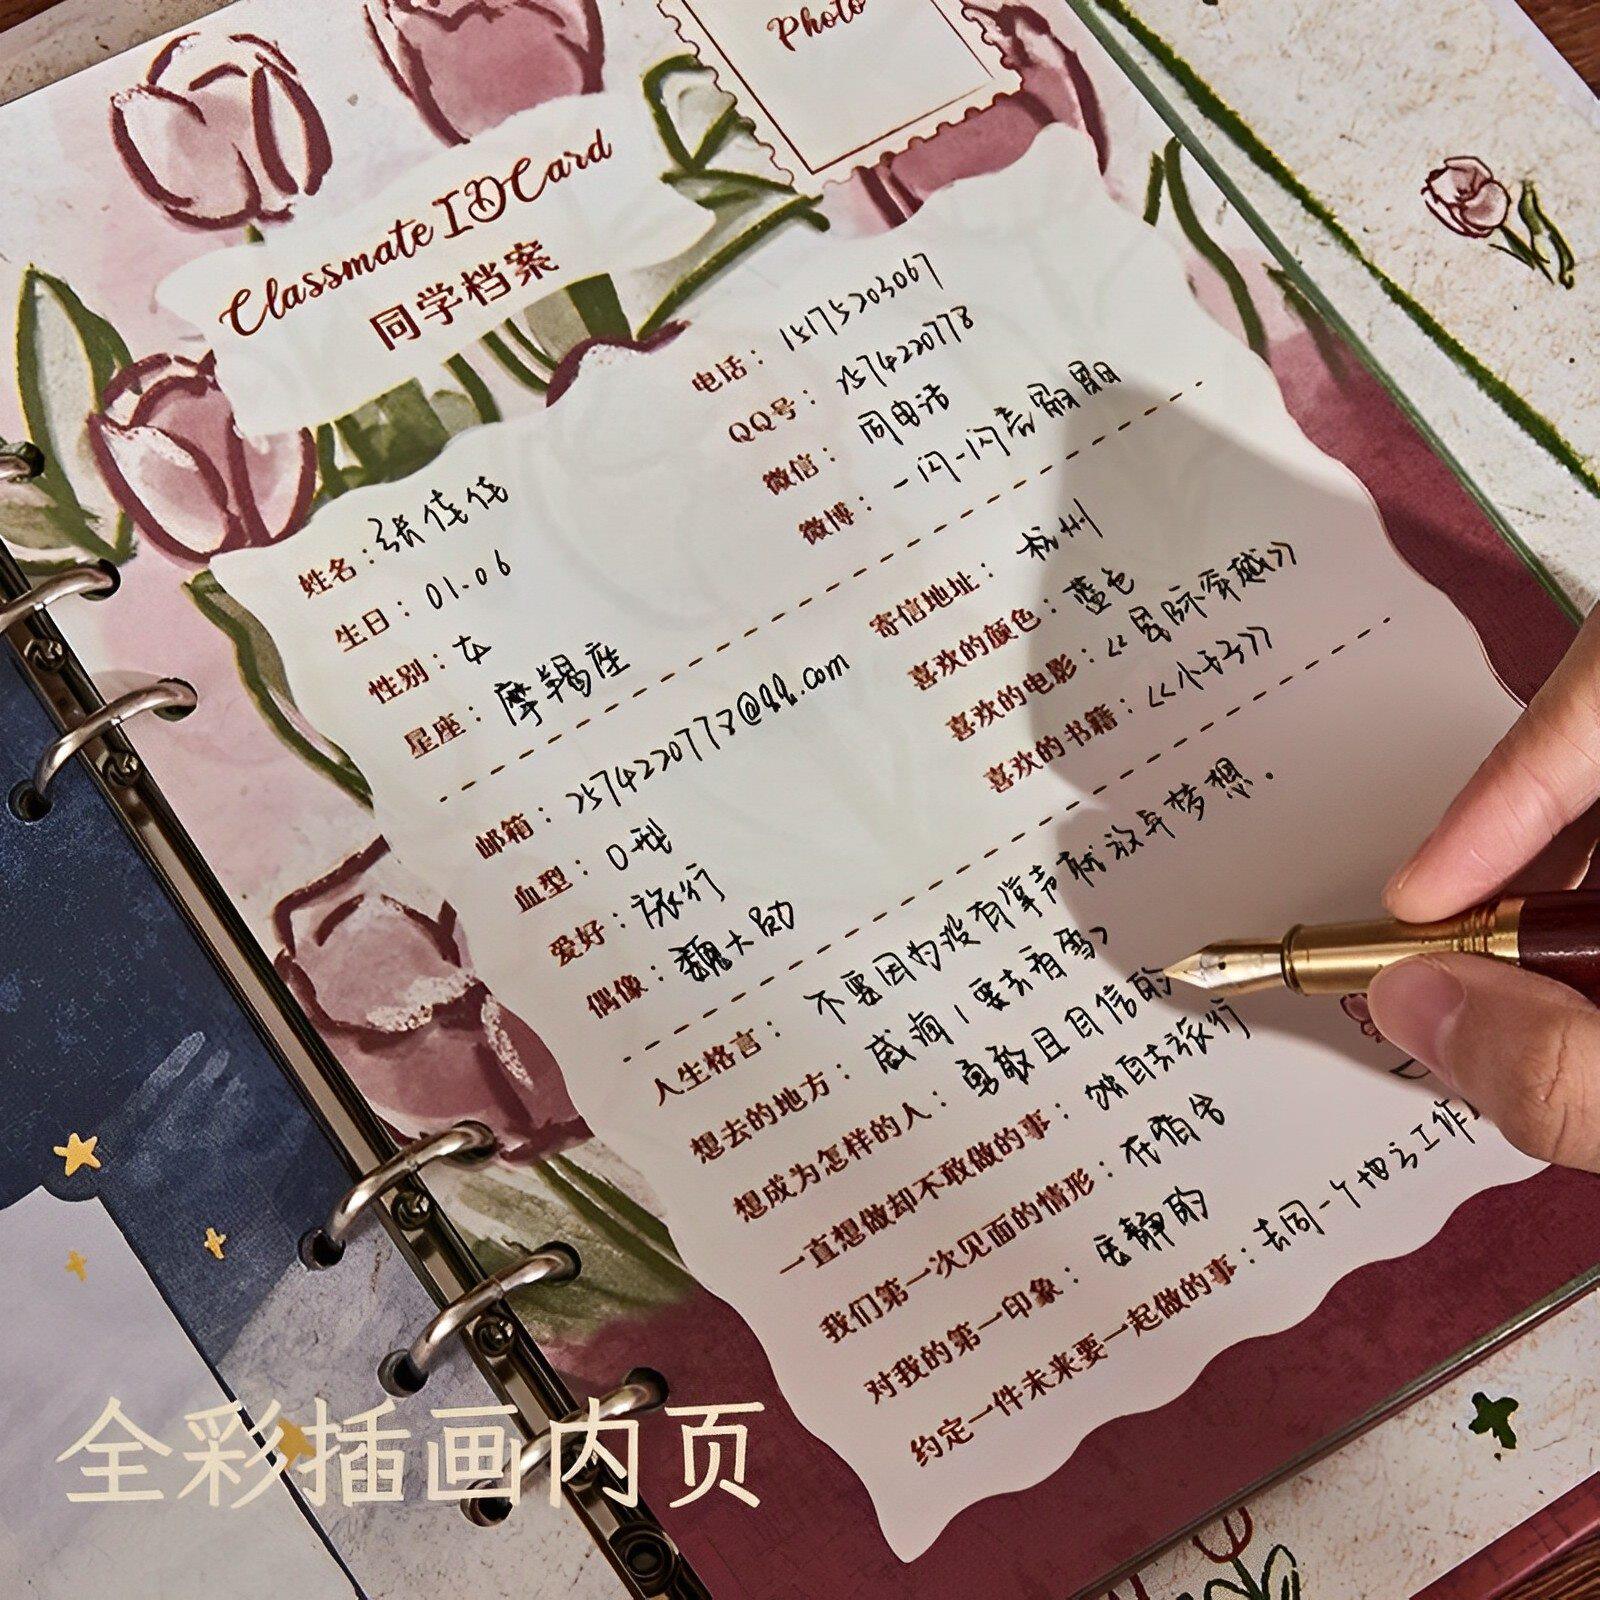 Photo
Classmate IDCard
同学档案
电话：15175203067
QQ号：2574220778
微信：同电话
微博：一闪一闪亮晶晶
姓名：张佳佳
生日：01.06
性别：女
星座：摩羯座
寄信地址：杭州
喜欢的颜色：蓝色
喜欢的电影：《星际穿越》
喜欢的书籍：《小王子》
邮箱：2574220778@qq.com
血型：O型
爱好：旅行
偶像：魏大勋
人生格言：不要因为没有掌声就放弃梦想.
想去的地方：威海（要去看雪）
想成为怎样的人：勇敢且自信的
一直想做却不敢做的事：独自去旅行
我们第一次见面的情形：在宿舍
对我的第一印象：安静的
约定一件未来要一起做的事：去同一个地方工作
全彩插画内页